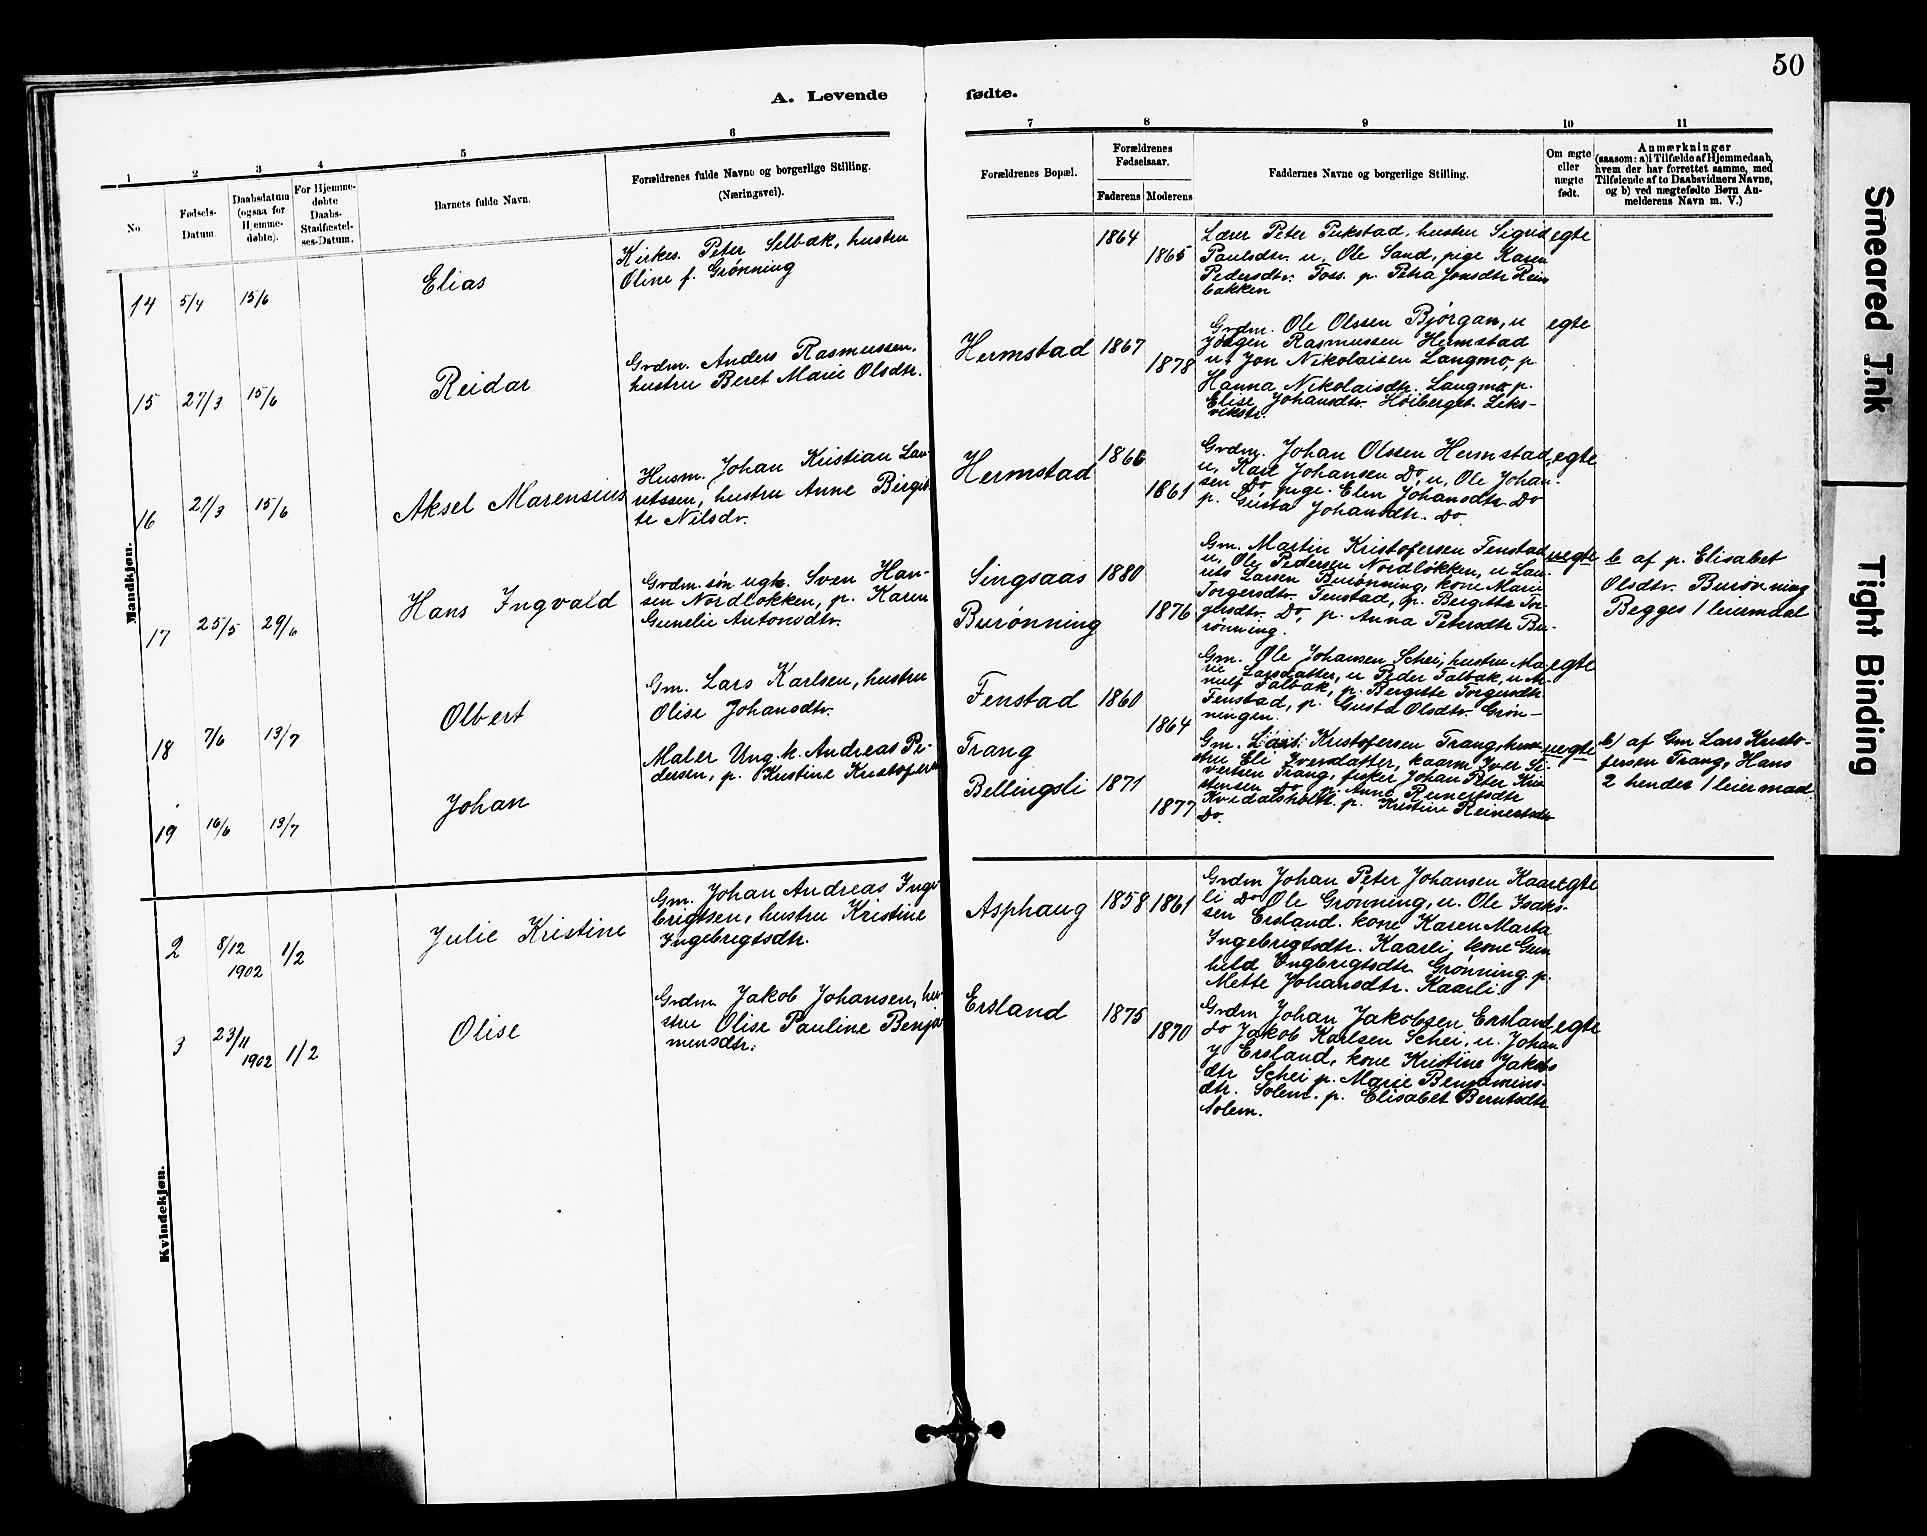 50
A. Levende fødte.
1
2
3
4
5
6
7
8
9
10
11
No.
Fødsels-
Datum.
Daabsdatum
(ogsaa for
Hjemme-
døbte).
For Hjemme-
døbte
Daabs-
Stadfæstel-
ses-Datum.
Barnets fulde Navn.
Forældrenes fulde Navne og borgerlige Stilling.
(Næringsvei).
Forældrenes Bopæl.
Forældrenes
Fødselsaar.
Faderens
Moderens
Faddernes Navne og borgerlige Stilling.
Om ægte
eller
uægte
født.
Anmærkninger
(saasom: a) i Tilfælde af Hjemmedaab,
hvem der har forrettet samme, med
Tilføiende af to Daabsvidners Navne,
og b) ved uægtefødte Børn An-
melderens Navn m. V.)
Mandkjøn.
14 5/4 15/6
Elias
Kirkes. Peter Selbæk, hustru
Oline f. Grønning
1864
1865
Lærer Peter Pukstad, hustru Sigrid
Paulsdtr. u. Ole Sand, pige Karen
Pedersdtr. Foss. p. Petra Jonsdtr. Rein
bakken
egte
15 27/3 15/6
Reidar
Grdm. Anders Rasmussen,
hustru Beret Marie Olsdtr.
Hermstad
1867
1878
Grdm. Ole Olssen Bjørgan, u
Jørgen Rasmussen Hermstad
u. Jon Nikolaisen Langmo, p
Hanna Nikolaisdtr. Langmo, p.
Elise Johansdtr. Høiberget. Leks-
vikstr.
egte
16 21/3 15/6
Aksel Marensius
Husm. Johan Kristian Lau-
ritssen, hustru Anne Birgit-
te Nilsdr.
Hermstad
1866
1861
Grdm. Johan Olssen Hermstad,
u. Karl Johansen Do, u. Ole Johan-
sen Do pige. Elen Johansdtr Do
p. Gusta Johansdtr. Do.
egte
17 25/5 29/6
Hans Ingvald
Grdm.søn ugk. Sven Han-
sen Nordløkken, p. Karen
Gunelie Antonsdtr.
Singsaas
Burønning
1880
1876
Gm. Martin Kristofersen Fenstad
u. Ole Pedersen Nordløkken, u Lau-
rits Larsen Burønning, kone Marie
Torgersdtr. Fenstad, p. Bergitte Tor-
gersdtr. Do, p. Anna Petersdtr Bu-
rønning.
uegte
b af p. Elisabet
Olsdtr. Burønning
Begges 1 leiermaal
18 7/6 13/7
Olbert
Gm. Lars Karlsen, hustru
Olise Johansdtr.
Fenstad
1860
1864
Gm. Ole Johansen Schei, hustru Ma
rie Larsdatter, u Peder Falbak, u Ar-
nulf Falbak, p. Bergitte Torgersdtr.
Fenstad, p. Gusta Olsdtr. Grøn-
ningen.
egte
19 16/6 13/7
Johan
Maler Ung.k. Andreas Pe-
dersen, p. Kristine Kristofersdtr
Trang
Bellingsli
1871
1877
Gm. Lars Kristofersen Trang, hus-
tru Eli Iversdatter, kaarm Iver Si-
vertsen Trang, fisker Johan Peter Kris
tensen Do p. Anne Reinertsdtr
Kvidalsholt. p. Kristine Reinertsdtr
Do.
uegte
b) af Gm Lars Kristo-
fersen Trang, Hans
2 hendes 1 leiermaal
Kvindekjøn.
2 8/12 1902 1/2
Julie Kristine
Gm. Johan Andreas Inge-
brigtsen, hustru Kristine
Ingebrigtsdtr.
Asphaug
1858
1861
Grdm Johan Peter Johansen Kaar
li Do Ole Grønning, u. Ole Isaks-
sen Ersland. kone Karen Marta
Ingebrigtsdtr. Kaarli, kone Gun
hild Ingbrigtsdtr. Grønning p.
Mette Johansdtr. Kaarli.
egte
3 23/11 1902 1/2
Olise
Grdm. Jakob Johansen, hu-
stru Olise Pauline Benja
minsdtr.
Ersland
1875
1870
Grdm Johan Jakobsen Ersland
do Jakob Karlsen Schei, u. Johan
J Ersland, kone Kristine Jakobs
dtr Schei p. Marie Benjamins-
dtr. Solem. p. Elisabet Berntsdtr
Solem.
egte
Smeared Ink
Tight Binding